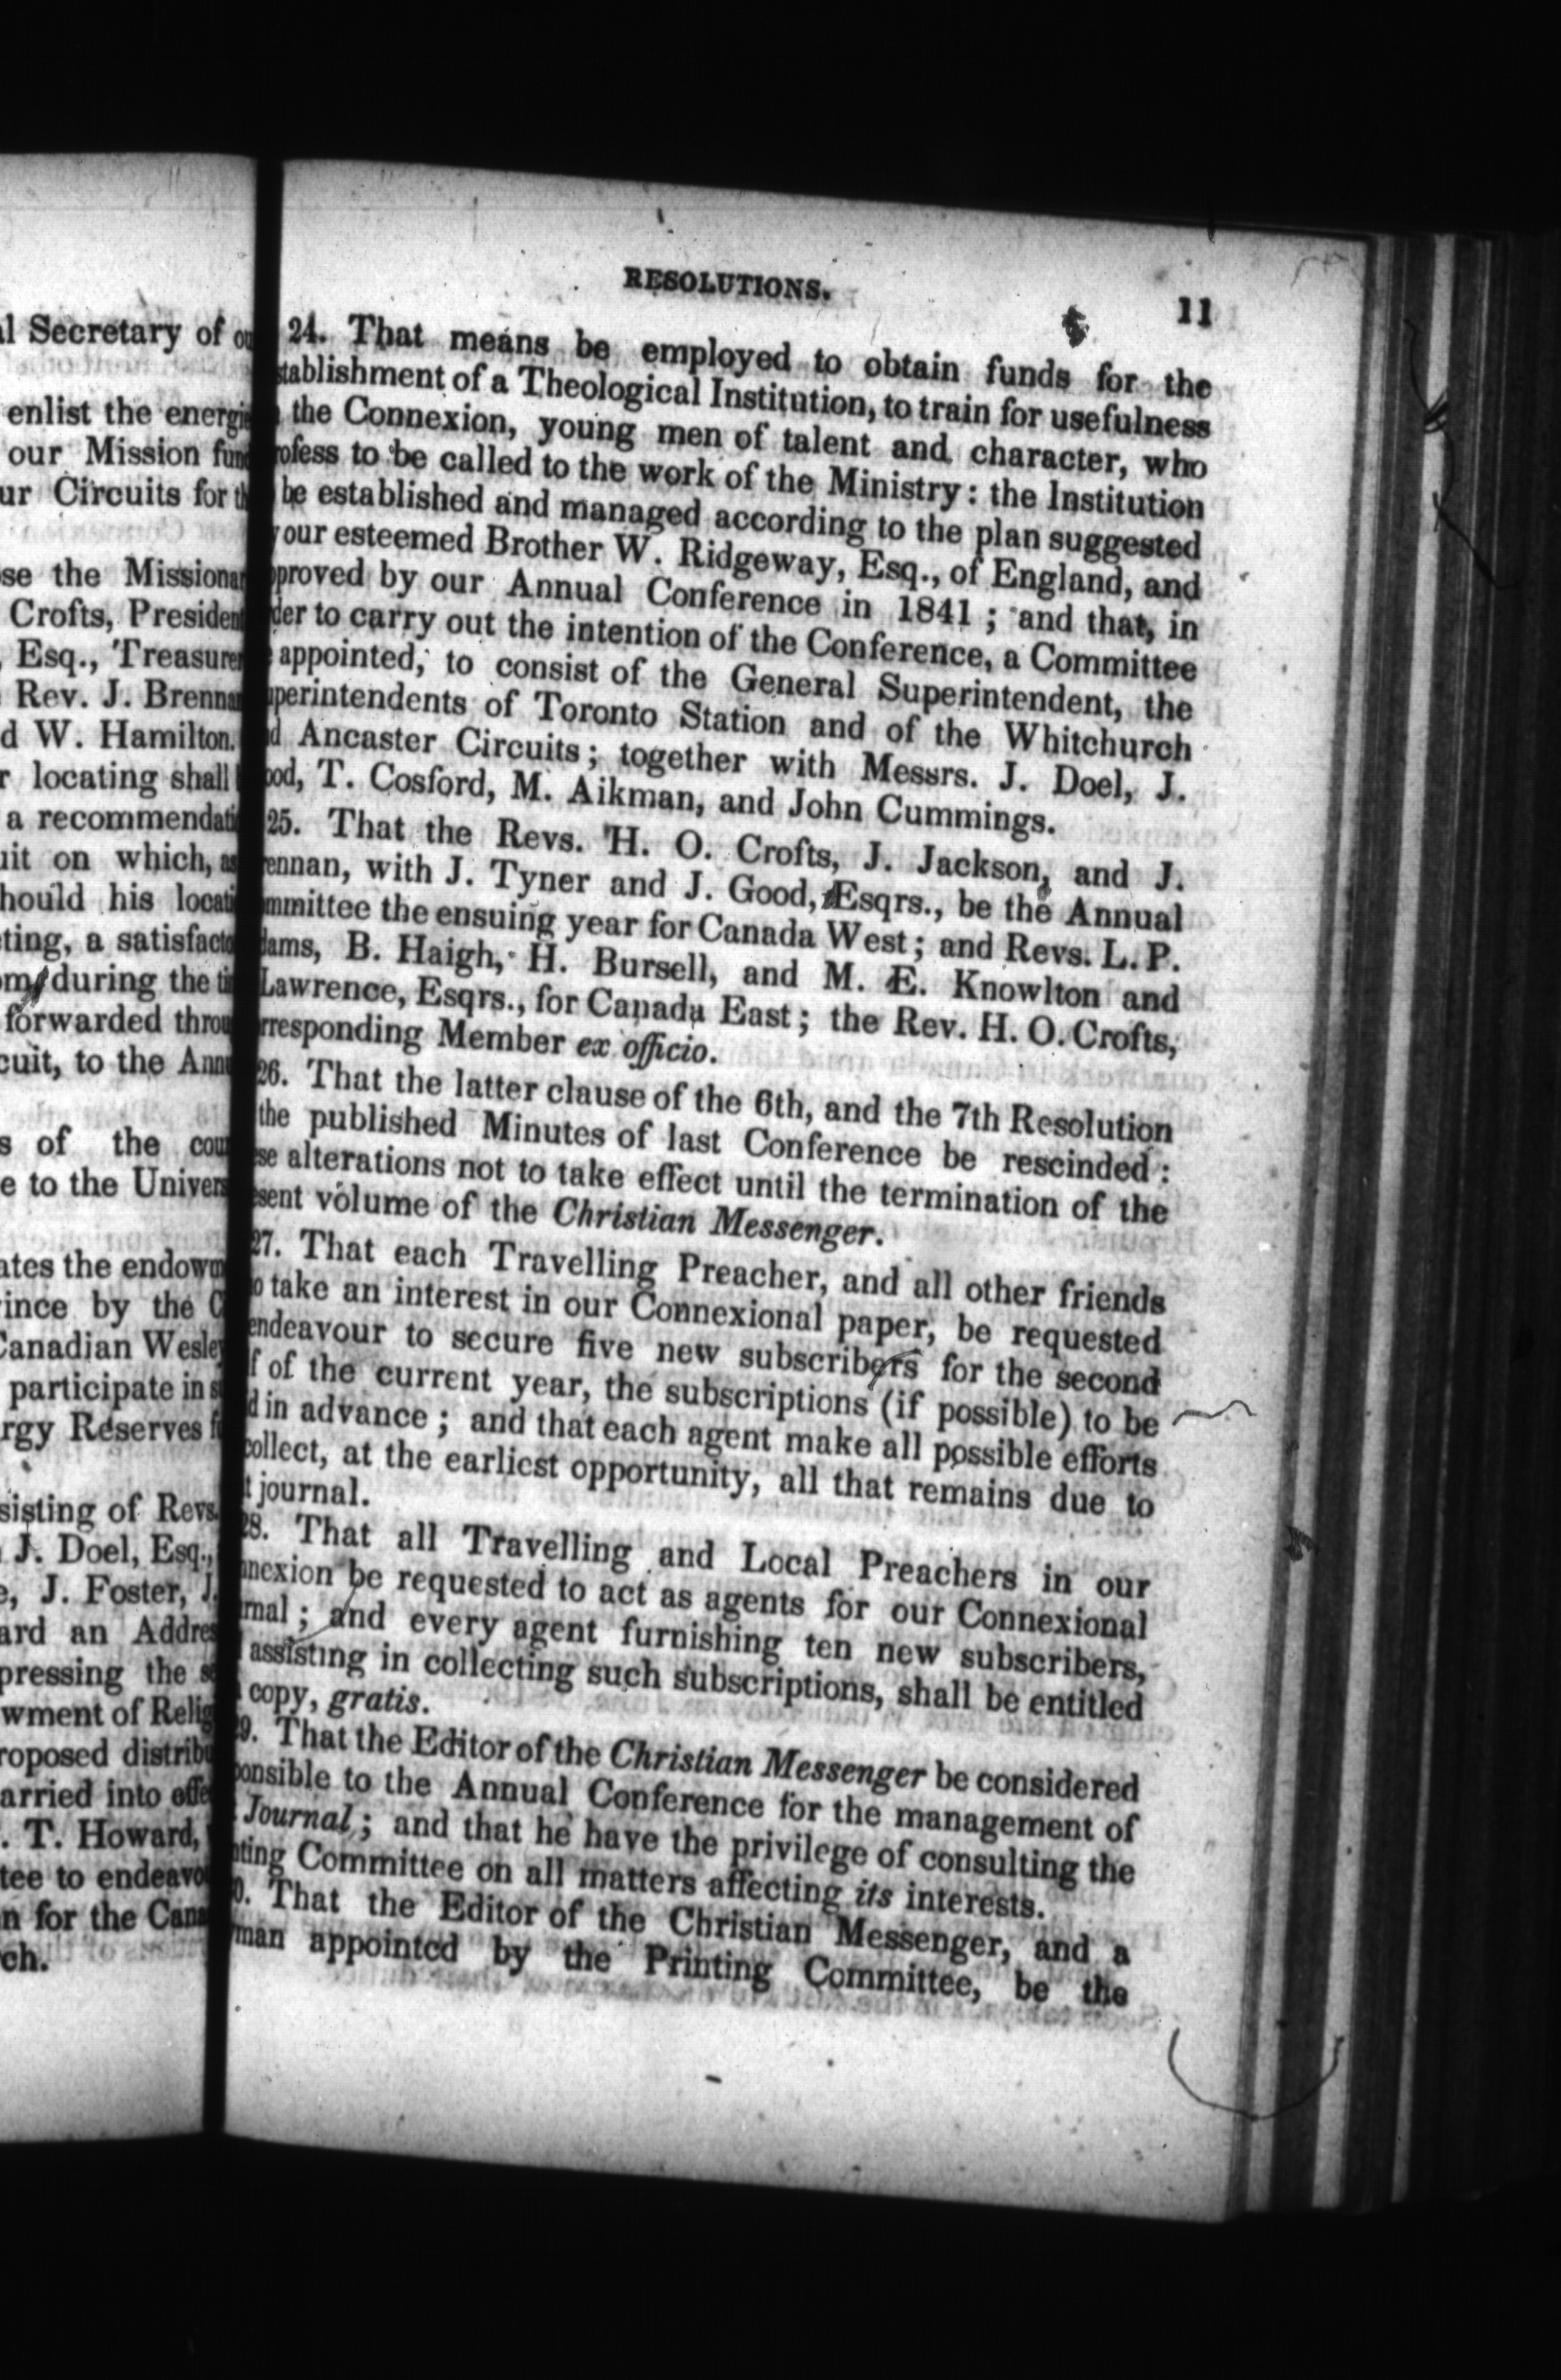 al Secretary of
enlist the
our Mission
ur Circuits for
se the
Crofts,
Esq.,
Rev. J.
d W. Hamilton.
r locating shall
a
uit on which,
hould his
ting, a
during the
forwarded
cuit, to the
s of the
e to the
ates the
ince by the
Canadian
participate in
rgy Reserves
sisting of Revs.
J. Doel, Esq.,
e, J. Foster, J.
ard an
pressing the
wment of
roposed
arried into
. T. Howard,
tee to
n for the
ch.
RESOLUTIONS.
11
24. That means be employed to obtain funds for the
stablishment of a Theological Institution, to train for usefulness
the Connexion, young men of talent and character, who
rofess to be called to the work of the Ministry: the Institution
be established and managed according to the plan suggested
our esteemed Brother W. Ridgeway, Esq., of England, and
pproved by our Annual Conference in 1841; and that, in
der to carry out the intention of the Conference, a Committee
appointed, to consist of the General Superintendent, the
uperintendents of Toronto Station and of the Whitchurch
d Ancaster Circuits; together with Messrs. J. Doel, J.
ood, T. Cosford, M. Aikman, and John Cummings.
25. That the Revs. H. O. Crofts, J. Jackson, and J.
ennan, with J. Tyner and J. Good, Esqrs., be the Annual
mmittee the ensuing year for Canada West; and Revs. L. P.
dams, B. Haigh, H. Bursell, and M. E. Knowlton and
Lawrence, Esqrs., for Canada East; the Rev. H. O. Crofts,
rresponding Member ex officio.
26. That the latter clause of the 6th, and the 7th Resolution
the published Minutes of last Conference be rescinded:
se alterations not to take effect until the termination of the
esent volume of the Christian Messenger.
27. That each Travelling Preacher, and all other friends
o take an interest in our Connexional paper, be requested
endeavour to secure five new subscribers for the second
f of the current year, the subscriptions (if possible) to be
d in advance; and that each agent make all possible efforts
collect, at the earliest opportunity, all that remains due to
t journal.
28. That all Travelling and Local Preachers in our
nnexion be requested to act as agents for our Connexional
rnal; and every agent furnishing ten new subscribers,
assisting in collecting such subscriptions, shall be entitled
copy, gratis.
29. That the Editor of the Christian Messenger be considered
ponsible to the Annual Conference for the management of
Journal; and that he have the privilege of consulting the
nting Committee on all matters affecting its interests.
0. That the Editor of the Christian Messenger, and a
man appointed by the Printing Committee, be the